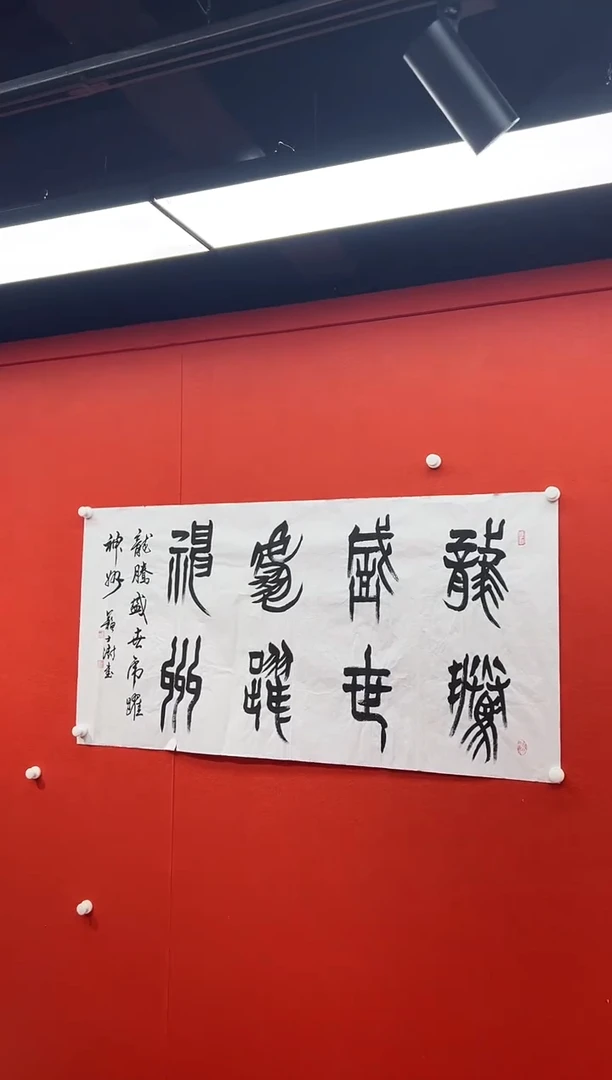 龍騰
盛世
虎躍
神州
龍騰盛世虎躍
神州